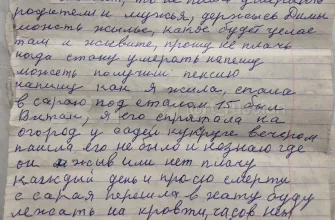 то не плачь умерать
родители и мужья, держысь Дима
можеть жилье, какое будет целое
там и жывите, прошу не плачь
когда стану умерать напишу
можеть получиш пенсию
напишу как я жила, спала
в сараю под сталом 15 был
Виталя, я его спрятала на
огород у садей кукурузе вечером
пашла его не было и незнаю где
он жив или нет плачу
кажный день и прошу смерти
с сарая перешла в хату буду
лежать на кровти, газов нет